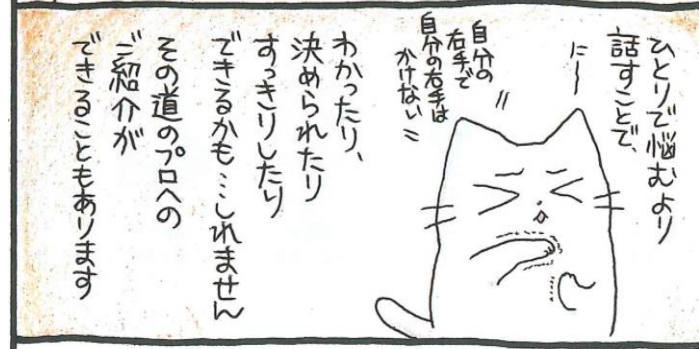 ひとりで悩むより
話すことで、
に〜
自分の
右手で
自分の右手は
かけない
わかったり、
決められたり
すっきりしたり
できるかも…しれません
その道のプロへの
ご紹介が
できることもあります